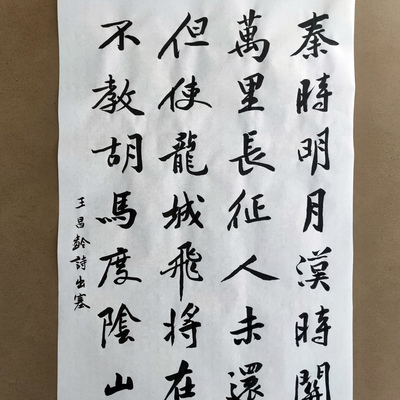 秦時明月漢時關
萬里長征人未還
但使龍城飛將在
不教胡馬度陰山
王昌齡詩出塞